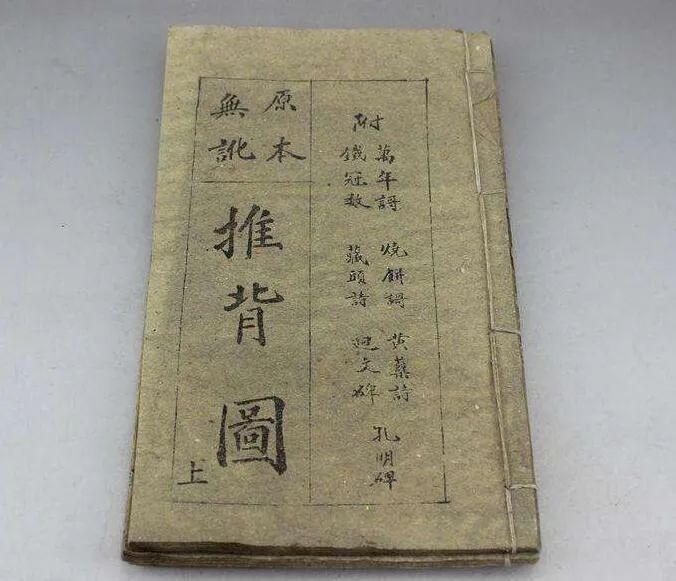 附
萬年謌 燒餅謌 黃蘗詩 孔明碑
鐵冠数 藏頭詩 文碑
原本
無訛
推背圖
上